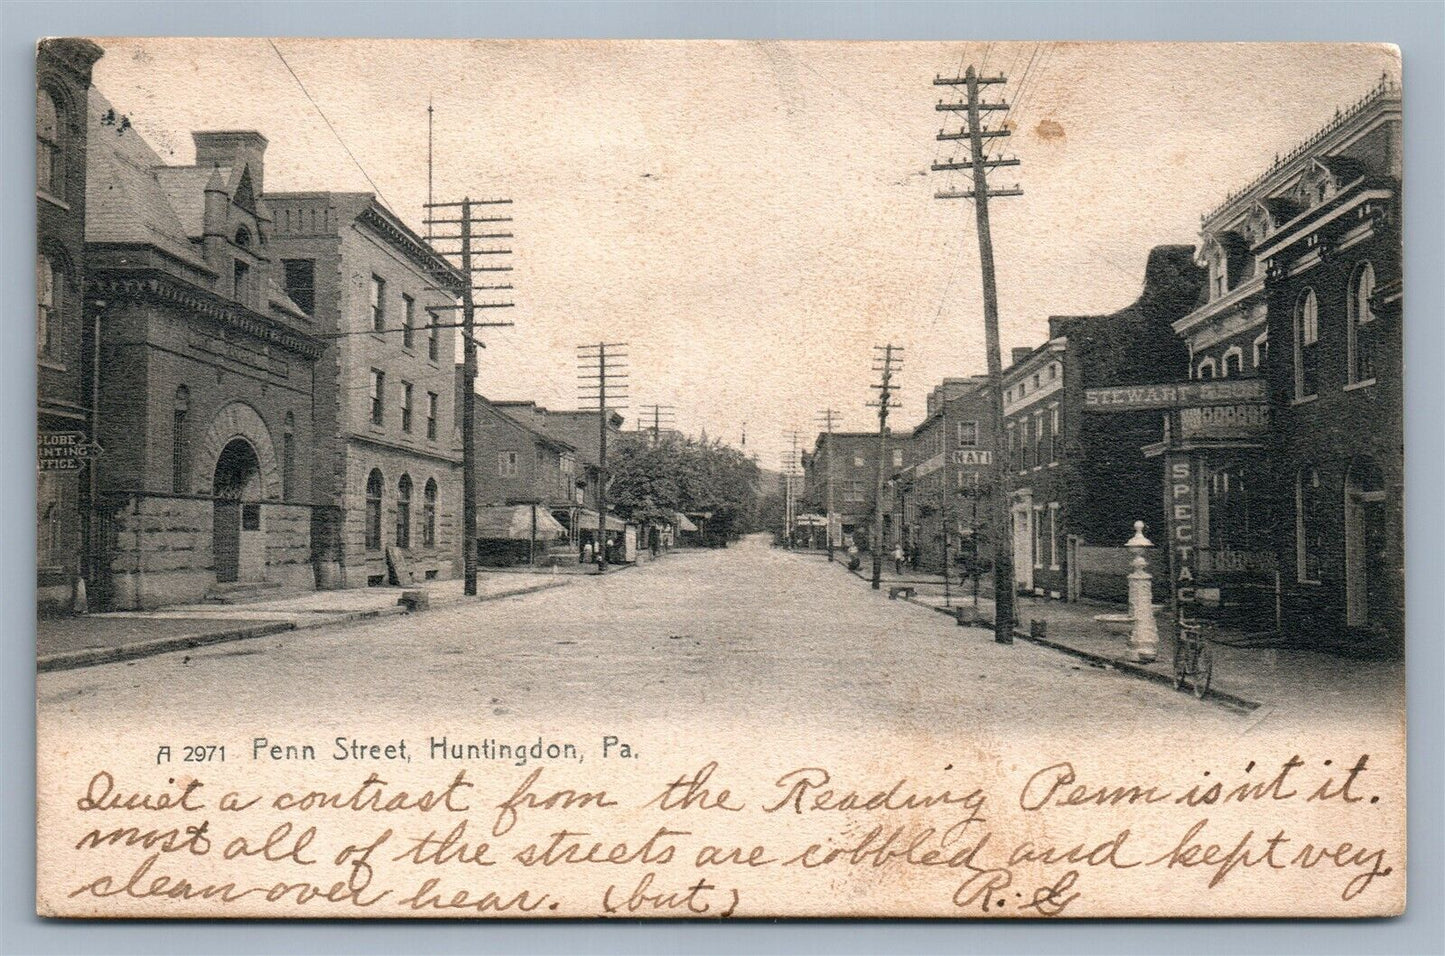 GLOBE
PRINTING
OFFICE
STEWART
NATI
SPECTACLE
A 2971 Penn Street, Huntingdon, Pa.
Quiet a contrast from the Reading Penn isn't it.
most all of the streets are cobbled and kept very
clean over hear. (but) R. G